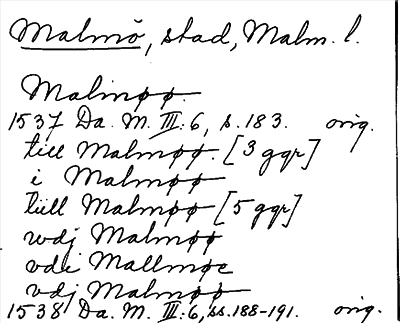 Malmö, stad, Malm. l.
Malmøø.
1537 Da. M. III:6, s. 183. orig.
till Malmøø. [3 ggr]
i Malmøø
tiill Malmøø [5 ggr]
wdj Malmøø
vdi Mallmøe
vdj Malmøø
1538 Da. M. III:6, ss. 188-191. orig.